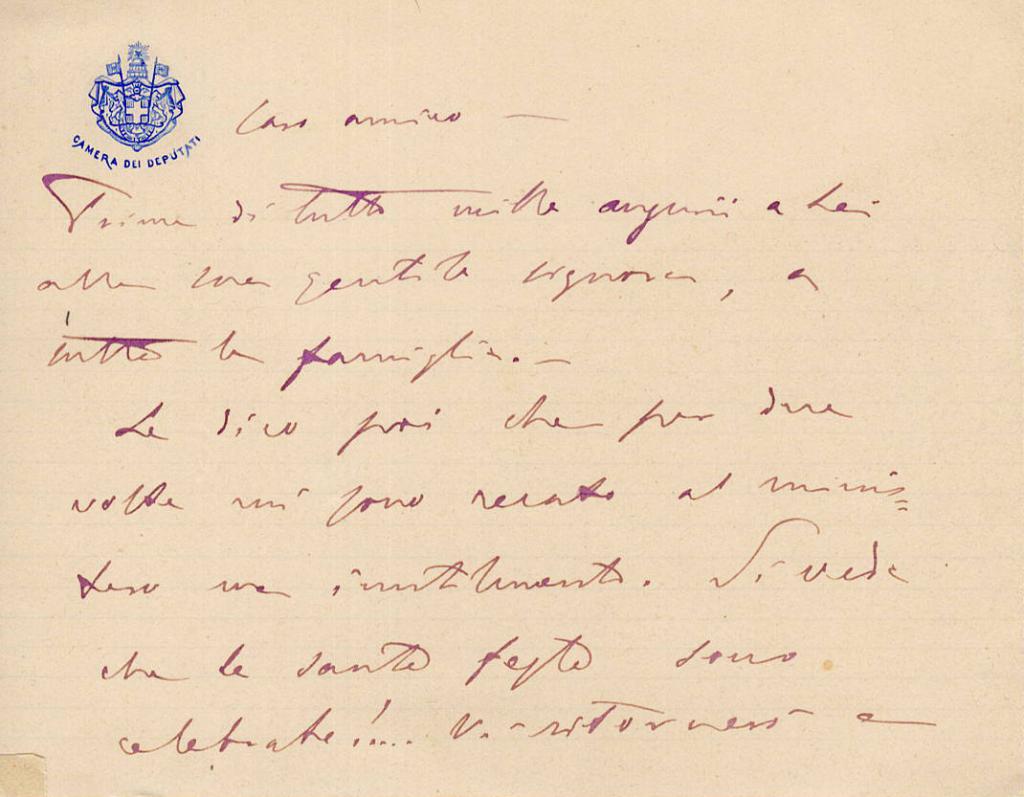 CAMERA DEI DEPUTATI
Caro amico —
Prima di tutto mille augurii a Lei
alla sua gentile signora, a
tutta la famiglia. —
Le dico poi che per due
volte mi sono recato al minis=
tero ma inutilmente. Si vede
che le sante feste sono
celebrate!.... Vi ritornerò e